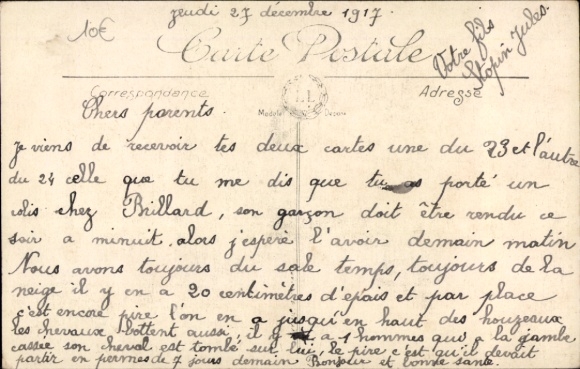 jeudi 27 décembre 1917
10€
Carte Postale
Votre fils
Jules.
Correspondance
Adresse
Chers parents.
Je viens de recevoir tes deux cartes une du 23 et l'autre
du 24 celle que tu me dis que tu as porté un
colis chez Brillard, son garçon doit être rendu ce
soir a minuit, alors j'espère l'avoir demain matin
Nous avons toujours du sale temps, toujours de la
neige il y en a 20 centimètres d'épais et par place
c'est encore pire l'on en a jusqu'en haut des houzeaux
les chevaux bottent aussi, il y a 1 hommes qui a la jambe
cassée son cheval est tombé sur lui, le pire c'est qu'il devait
partir en permes de 7 jours demain Bonjour et bonne santé.